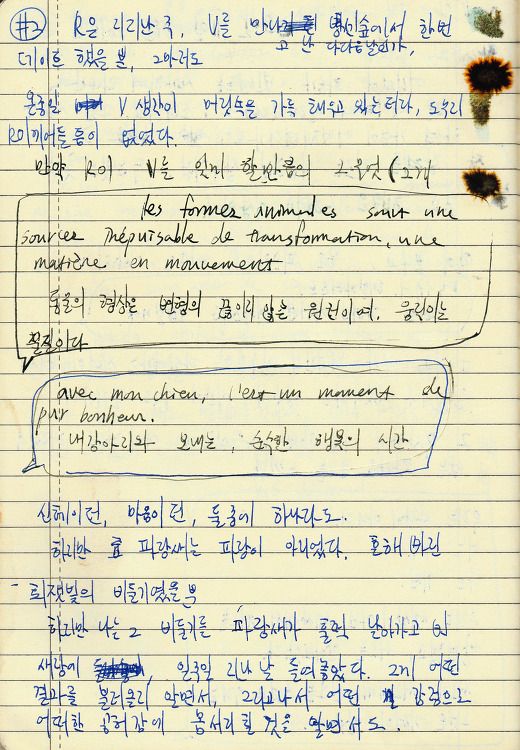 #2 R은 리리난 즉, V를 만나고 난 다다음날인가, 병신숲에서 한번
데이트 했을 뿐, 그마저도
온종일 V 생각이 머릿속을 가득 채우고 있는터라, 도무지
R이 끼어들 틈이 없었다.
만약 R이 V를 잊게 할만큼의 그 무엇 (그게
les formes animales sont une
source inépuisable de transformation, une
matière en mouvement
동물의 형상은 변형의 끊이지 않는 원천이며, 움직이는
물질이다
avec mon chien, c'est un moment de
pur bonheur.
내 강아리와 보내는, 순수한 행복의 시간
신체이던, 마음이던, 둘중에 하나라도.
하지만 효 파랑새는 파랑이 아니었다. 흔해 빠진
- 회잿빛의 비둘기였을 뿐
하지만 나는 그 비둘기를 파랑새가 훌쩍 날아가고 없
새랑에 일주일 지나 날 들여놓았다. 그게 어떤
결과를 불러올지 알면서, 그리고나서 어떤 감정으로
어떠한 공허감에 몸서리칠 것을 알면서도.